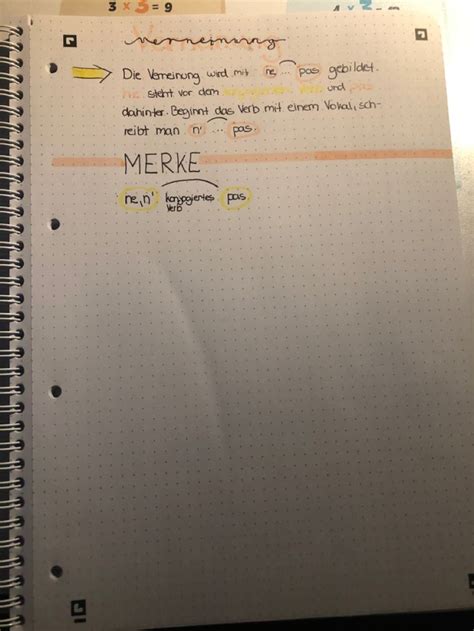 3 x 3 = 9
Verneinung
Die Verneinung wird mit ne ... pas gebildet.
ne steht vor dem konjugierten Verb und pas
dahinter. Beginnt das Verb mit einem Vokal, sch-
reibt man n' ... pas.
MERKE
ne, n' konjugiertes Verb pas